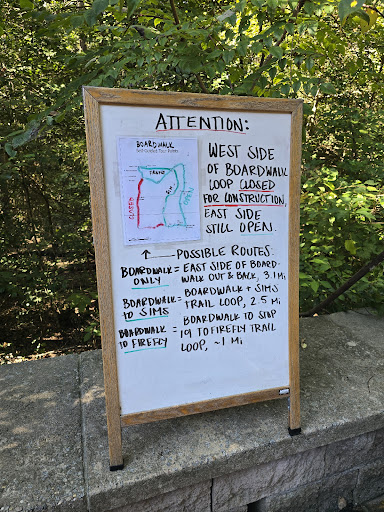 ATTENTION:
BOARDWALK
Self-Guided Tour Points
CLOSED
SIMS
WEST SIDE
OF BOARDWALK
LOOP CLOSED
FOR CONSTRUCTION,
EAST SIDE
STILL OPEN.
POSSIBLE ROUTES:
BOARDWALK ONLY = EAST SIDE OF BOARD-
WALK OUT & BACK, 3.1 Mi
BOARDWALK to SIMS = BOARDWALK + SIMS
TRAIL LOOP, 2.5 Mi
BOARDWALK to FIREFLY = BOARDWALK TO STOP
19 TO FIREFLY TRAIL
LOOP, ~1 Mi